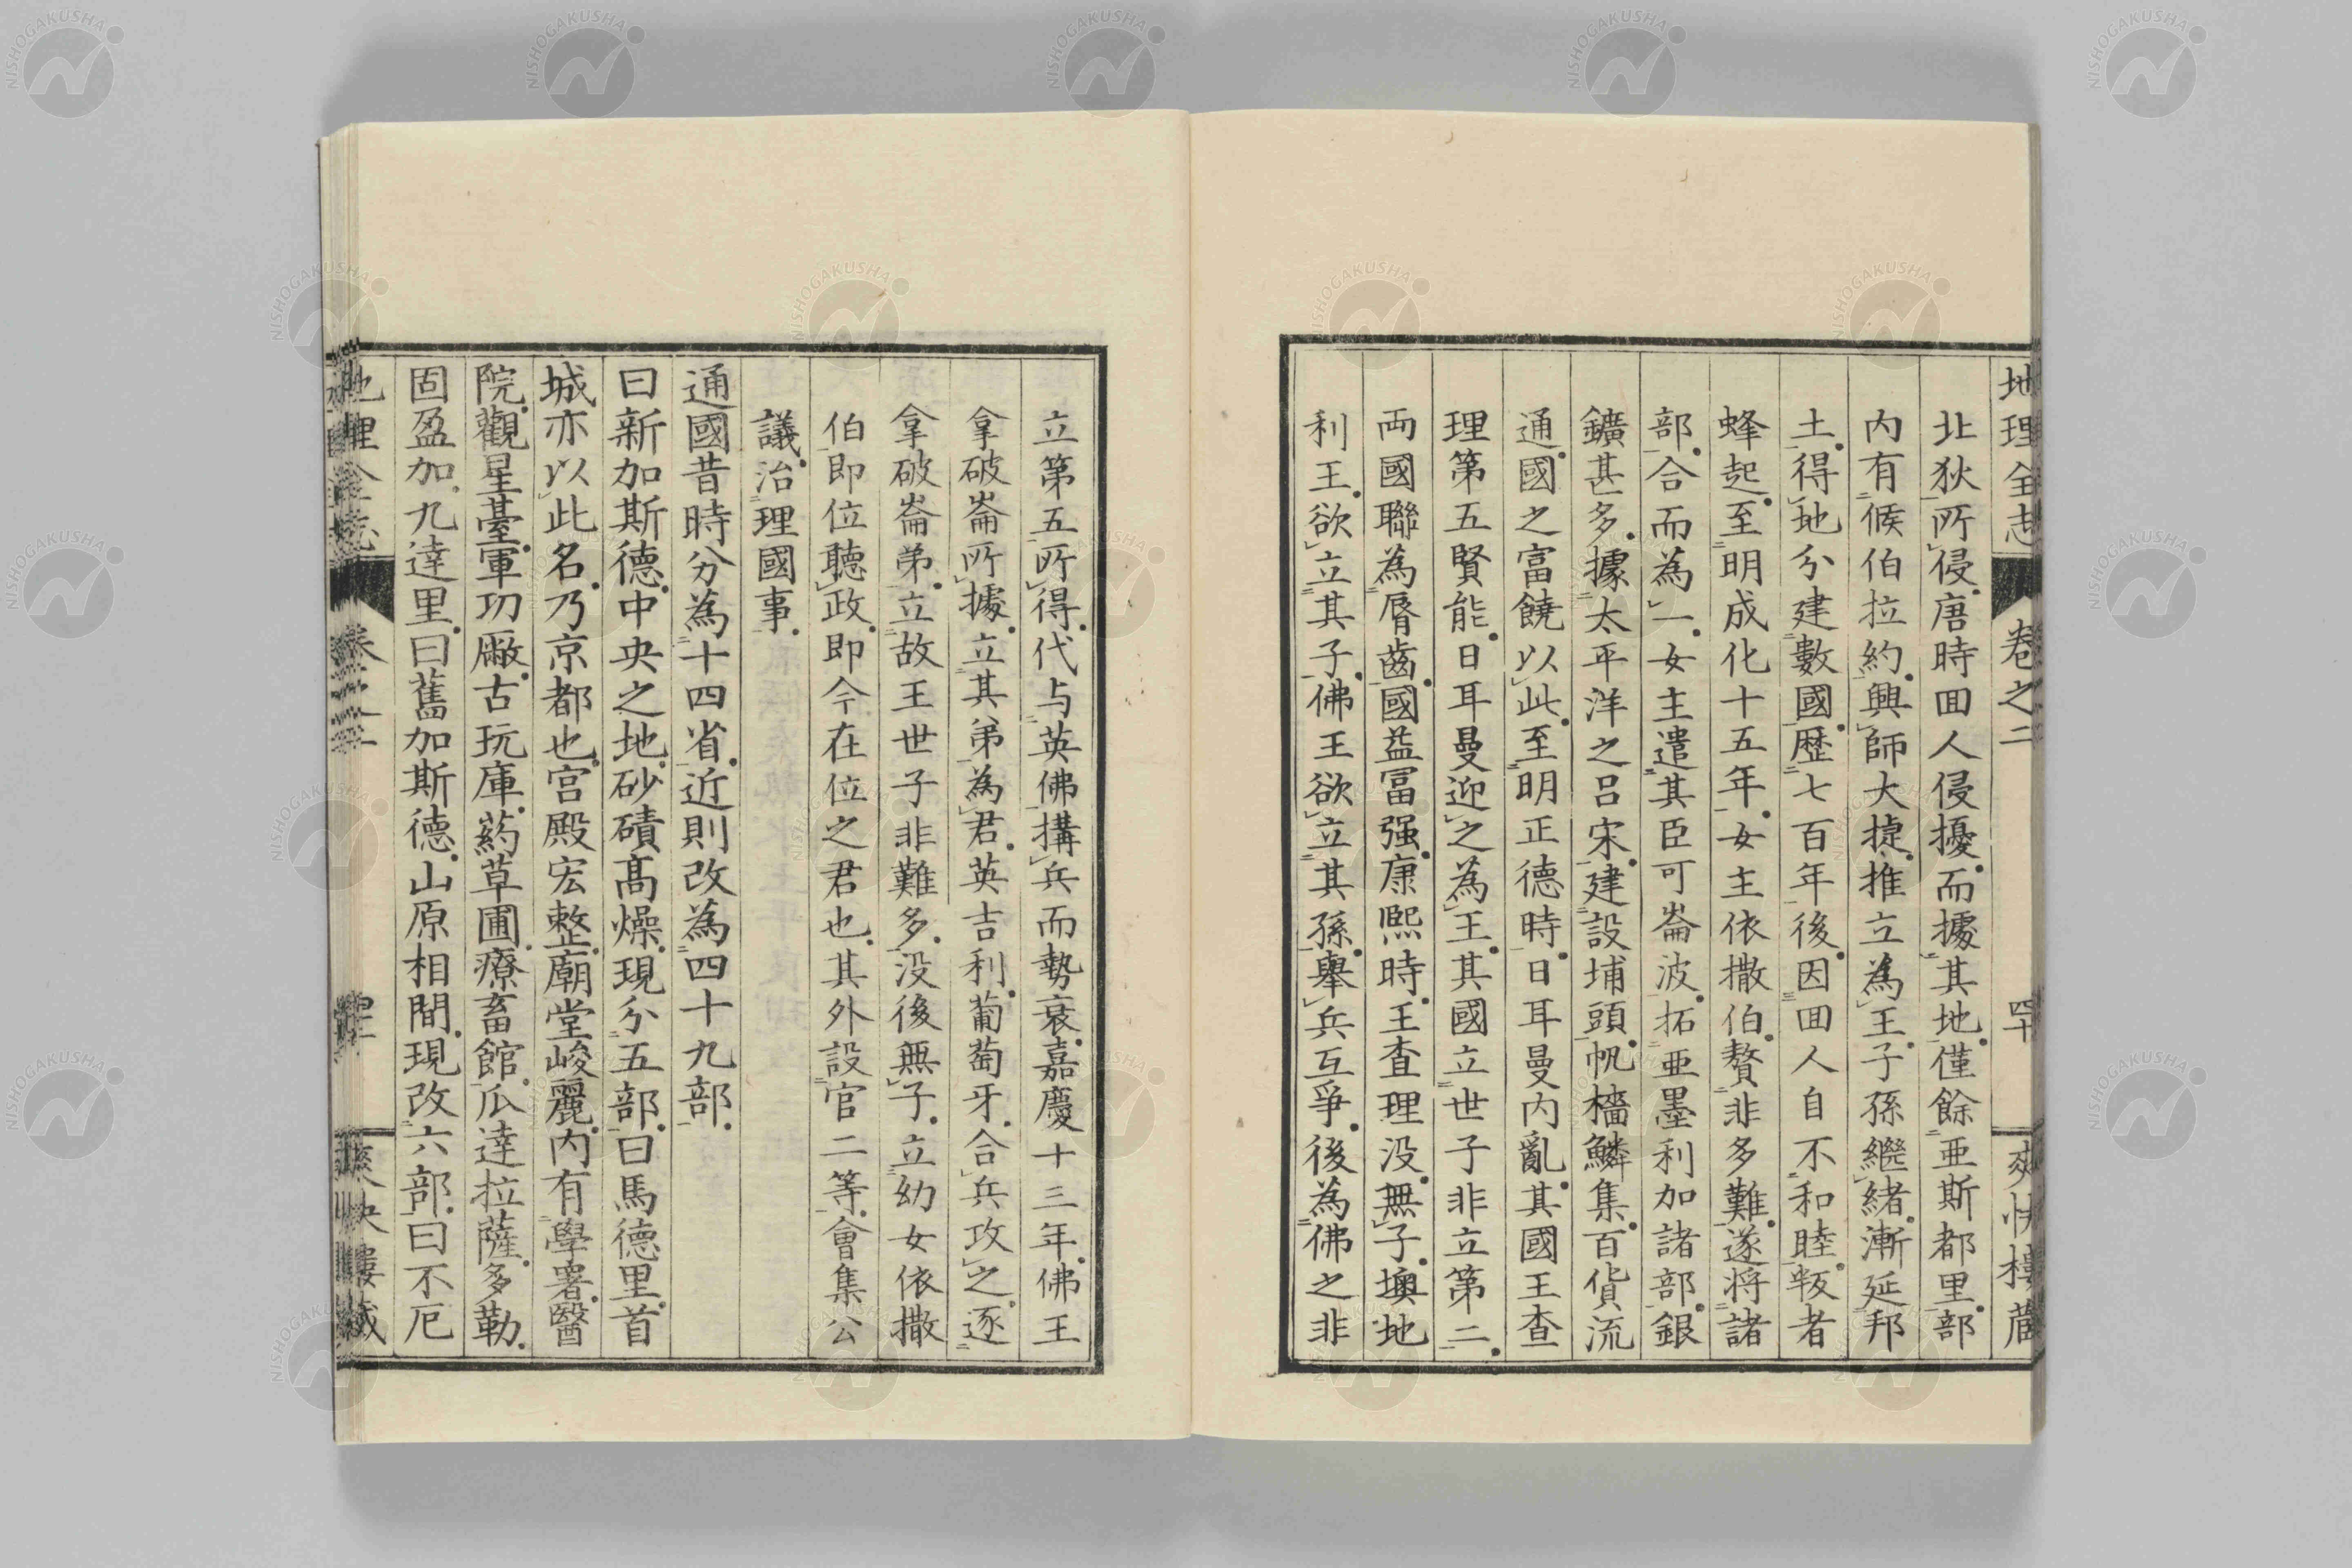 地理全志 卷之二 四十 爽快樓藏
北狄所侵唐時回人侵擾而據其地僅餘亜斯都里部
内有候伯拉約興師大捷推立為王子孫繼緒漸延邦
土得地分建數國歷七百年後因回人自不和睦叛者
蜂起至明成化十五年女主依撒伯贅非多難遂将諸
部合而為一女主遣其臣可崙波拓亜墨利加諸部銀
鑛甚多據太平洋之呂宋建設埔頭帆檣鱗集百貨流
通國之富饒以此至明正德時日耳曼内亂其國王查
理第五賢能日耳曼迎之為王其國立世子非立第二
両國聯為脣齒國益冨强康熙時王査理没無子墺地
利王欲立其子佛王欲立其孫舉兵互爭後為佛之非
立第五所得代与英佛搆兵而勢衰嘉慶十三年佛王
拿破崙所據立其弟為君英吉利葡萄牙合兵攻之逐
拿破崙弟立故王世子非難多没後無子立幼女依撒
伯即位聽政即今在位之君也其外設官二等會集公
議治理國事
通國昔時分為十四省近則改為四十九部
曰新加斯德中央之地砂磧髙燥現分五部曰馬德里首
城亦以此名乃京都也宮殿宏整廟堂峻麗内有學署醫
院觀星臺軍功厰古玩庫葯草圃療畜館瓜達拉薩多勒
固盈加九達里曰舊加斯德山原相間現改六部曰不厄
地理全志 卷之二 爽快樓藏